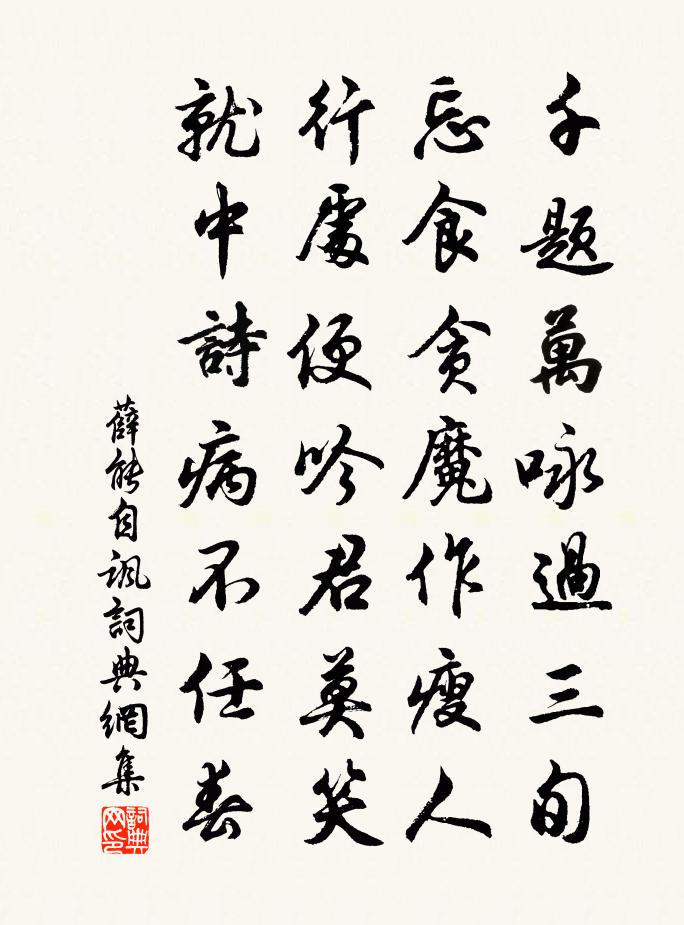 千題萬咏過三旬
忘食貪魔作瘦人
行處便吟君莫笑
就中詩病不任春
薛能自諷詞典網集
詞典网印